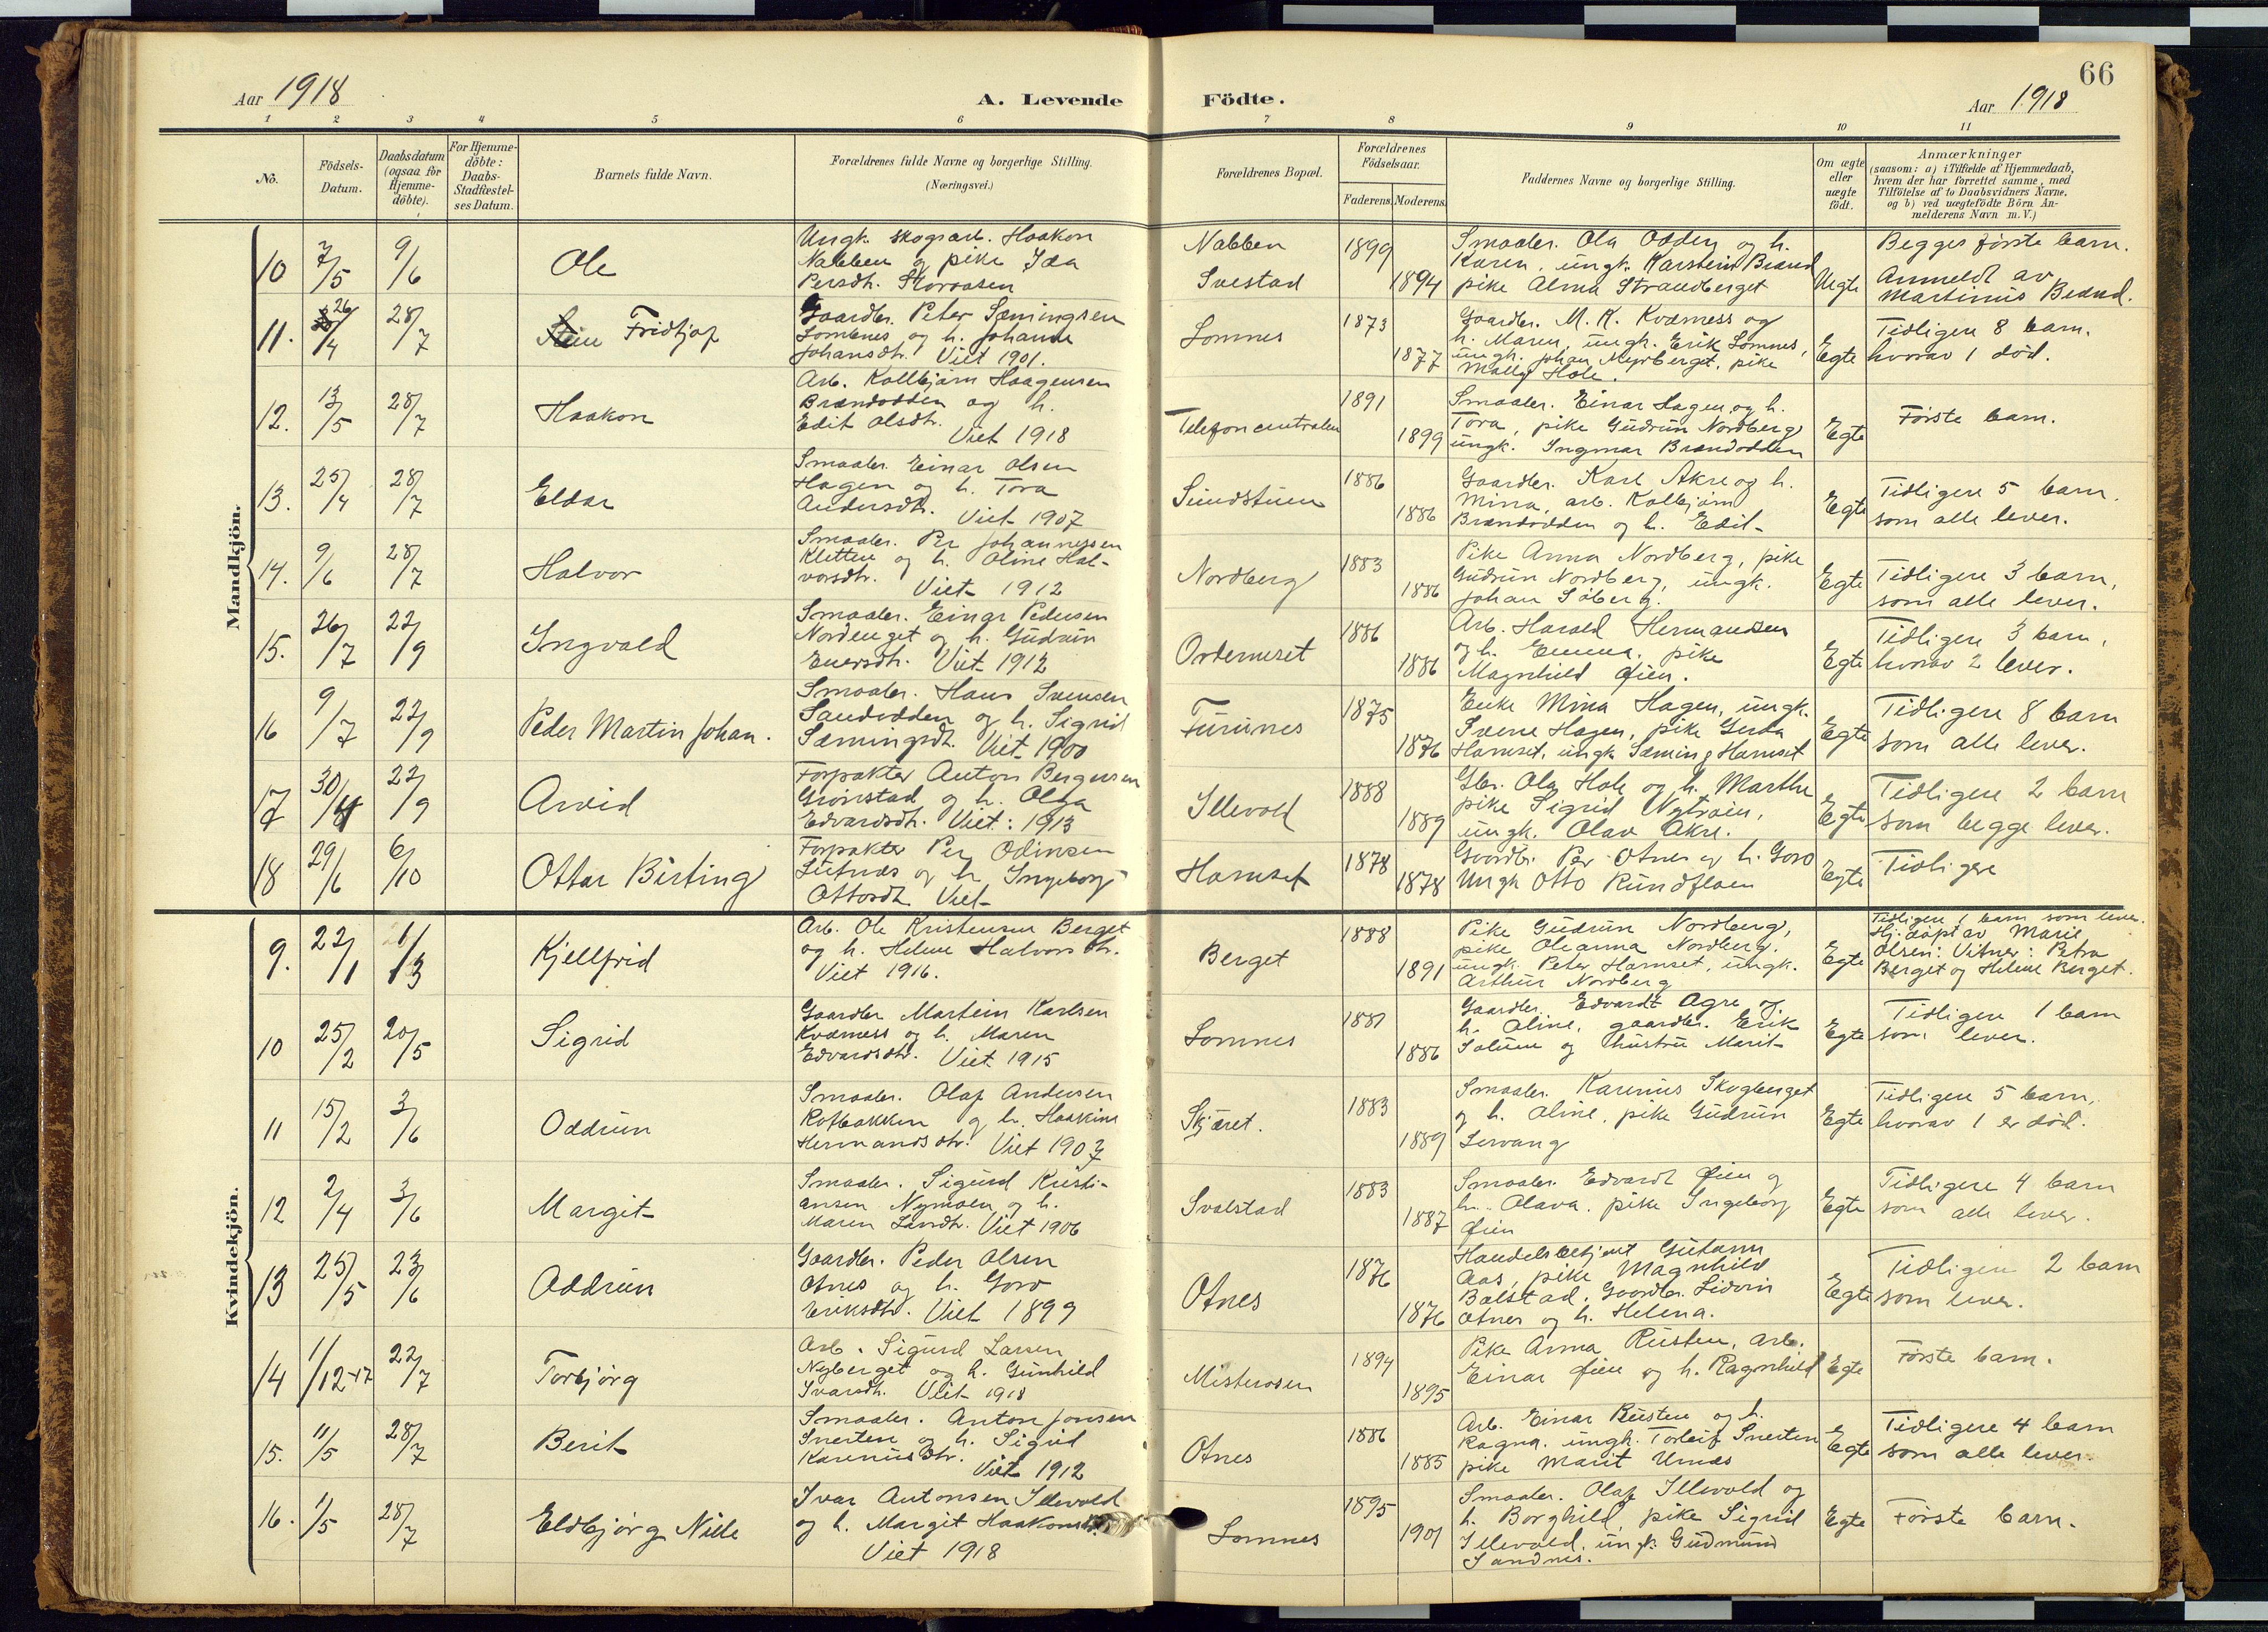 66
Aar 1918
A. Levende Födte.
Aar 1918
1 2 3 4 5 6 7 8 9 10 11
No.
Födsels-
Datum.
Daabsdatum
(ogsaa for
Hjemme-
döbte).
For Hjemme-
döbte:
Daabs-
Stadfæstel-
ses Datum.
Barnets fulde Navn.
Forældrenes fulde Navne og borgerlige Stilling.
(Næringsvei.)
Forældrenes Bopæl.
Forældrenes
Födselsaar.
Faderens. Moderens.
Faddernes Navne og borgerlige Stilling.
Om ægte
eller
uægte
födt.
Anmærkninger
(saasom: a) i Tilfælde af Hjemmedaab,
hvem der har forrettet samme, med
Tilföielse af to Daabsvidners Navne.
og b) ved uægtefödte Börn An-
melderens Navn m. V.)
Mandkjön.
10 7/5 9/6 Ole
Ungk. skogsarb. Haakon
Nabben og pike Ida
Persdh. Storaasen
Nabben
Svestad
1899
1894
Smaabr. Ola Odden og h.
Karen, ungk. Karstein Brænd
pike Alma Strandberget
Uegte
Begges første barn.
Anmeldt av
Martinus Brænd.
11. 26/4 28/7 Fridtjof
Gaardbr. Peter Sæmingsen
Lomnes og h. Johanne
Johansdh. Viet 1901.
Lomnes
1873
1877
Gaardbr. M. K. Kvæmess og
h. Maren, ungk. Erik Lomnes,
ungk. Johan Myrberget, pike
Molly Hole.
Egte
Tidligere 8 barn.
hvorav 1 død.
12. 13/5 28/7 Haakon
Arb. Kolbjørn Haagensen
Brændodden og h.
Edit Olsdh.
Viet 1918
Telefoncentralen
1891
1899
Smaabr. Einar Hagen og h.
Tora, pike Gudrun Nordberg
ungk. Ingmar Brændodden
Egte
Første barn.
13. 25/4 28/7 Eldar
Smaabr. Einar Olsen
Hagen og h. Tora
Andersdh. Viet 1907
Sundstuen
1886
1886
Gaardbr. Karl Akre og h.
Mina, arb. Kolbjørn
Brændodden og h. Edit
Egte
Tidligere 5 barn.
som alle lever.
14. 9/6 28/7 Halvor
Smaabr. Per Johannessen
Kletten og h. Oline Hal-
vorsdh. Viet 1912
Nordberg
1883
1886
Pike Anna Nordberg, pike
Gudrun Nordberg, ungk.
Johan Søberg.
Egte
Tidligere 3 barn,
som alle lever.
15. 26/7 22/9 Ingvald
Smaabr. Einar Pedersen
Nordenget og h. Gudrun
Enersdh. Viet 1912
1886
1886
Arb. Harald Hermandsen
og h. Emma, pike
Magnhild Øien.
Egte
Tidligere 3 barn,
hvorav 2 lever.
16 9/7 22/9 Peder Martin Johan.
Smaabr. Hans Svensen
Sandodden og h. Sigrid
Sæmingsdh. Viet 1900
Furunes
1875
1876
Enke Mina Hagen, ungk.
Sverre Hagen, pike Gerda
Harnset, ungk. Sæming Harnset
Egte
Tidligere 8 barn
som alle lever.
17 30/4 22/9 Arvid
Forpakter Anton Bergersen
Grønstad og h. Olga
Edvardsdh. Viet: 1913
Illevold
1888
1889
Gbr. Ola Hole og h. Marthe
pike Sigrid Nytrøen,
ungk. Olav Akre.
Egte
Tidligere 2 barn
som begge lever.
18 29/6 6/10 Ottar Birting
Forpakter Per Odinsen
Lutnæs og h. Ingeborg
Ottosdh. Viet
Harnset
1878
1878
Gaardbr. Per Otnes og h. Goro
Ungk Otto Rundfloen
Egte
Tidligere
Kvindekjön.
9. 22/1 1/3 Kjellfrid
Arb. Ole Kristensen Berget
og h. Helene Halvorsdtr.
Viet 1916.
Berget
1888
1891
Pike Gudrun Nordberg,
pike Oleanna Nordberg.
ungk. Peter Harnset, ungk.
Arthur Nordberg
Egte
Tidligere 1 barn som lever.
Hj. døpt av Marie
Olsen: Vitner: Petra
Berget og Helene Berget.
10 25/2 20/5 Sigrid
Gaardbr. Martein Karlsen
Kvæmess og h. Maren
Edvardsdtr. Viet 1915
Lomnes
1881
1886
Gaardbr. Edvardt Agre og
h. Oline, gaardbr. Erik
Solum og hustru Marit
Egte
Tidligere 1 barn
som lever.
11 15/2 3/6 Oddrun
Smaabr. Olaf Andersen
Rotbakken og h. Haakine
Hermandsdtr. Viet 1907
Skjæret.
1883
1889
Smaabr. Karenus Skogberget
og h. Oline, pike Gudrun
Lervang
Egte
Tidligere 5 barn,
hvorav 1 er død.
12 2/4 3/6 Margit
Smaabr. Sigurd Kristi-
ansen Nymoen og h.
Maren Larsdtr. Viet 1906
Svalstad
1883
1887
Smaabr. Edvardt Øien og
h. Olava. pike Ingeborg
Øien
Egte
Tidligere 4 barn
som alle lever.
13 25/5 23/6 Oddrun
Gaardbr. Peder Olsen
Otnes og h. Goro
Eriksdtr. Viet 1899
Otnes
1876
1876
Handelsbetjent Gutorm
Aas, pike Magnhild
Bolstad, Gaardbr. Sidvin
Otnes og h. Helena.
Egte
Tidligere 2 barn
som lever.
14 1/12-17 22/7 Torbjørg
Arb. Sigurd Larsen
Nyberget og h. Gunhild
Ivarsdh. Viet 1918
Misterosen
1894
1895
Pike Anna Rusten, Arb.
Einar Øien og h. Ragnhild
Egte
Første barn.
15. 11/5 28/7 Berit
Smaabr. Anton Jonsen
Snerten og h. Sigrid
Karenusdtr.
Viet 1912
Otnes
1886
1885
Arb. Einar Rusten og h.
Ragna. ungk. Torleif Snerten
pike Marit Unæs
Egte
Tidligere 4 barn
som alle lever.
16. 1/5 28/7 Eldbjørg
Ivar Antonsen Illevold
og h. Margit
Viet 1918
Lomnes
1895
1901
Smaabr. Olaf Illevold og
h. Borghild, pike Sigrid
Illevold, ungk. Gudmund
Sandnes.
Egte
Første barn.